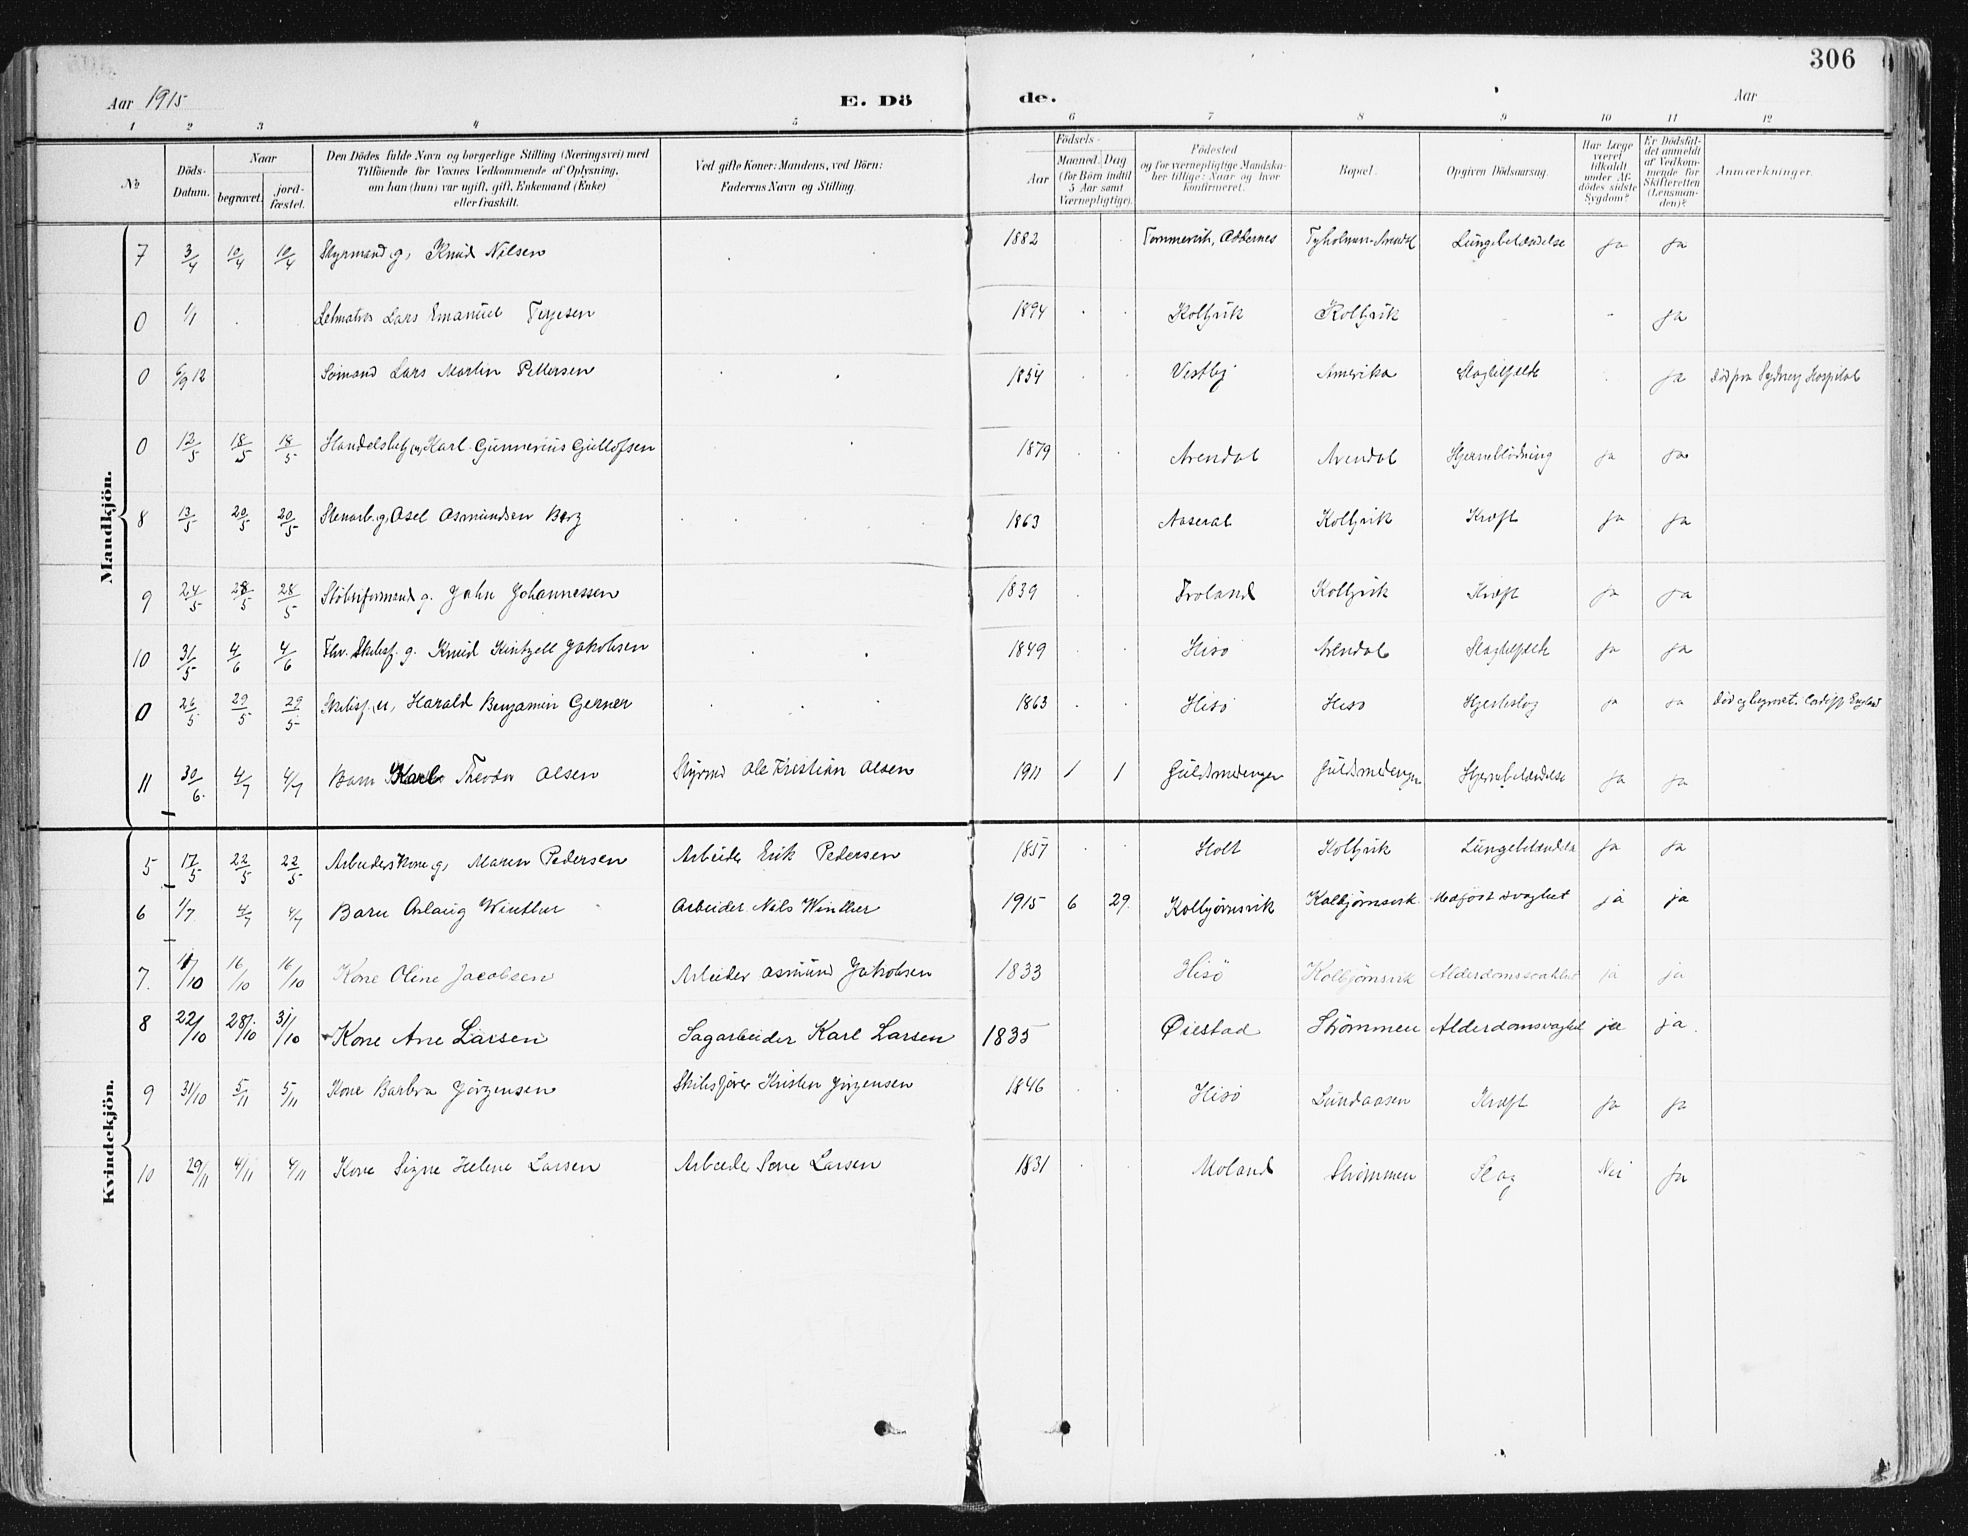 306
Aar 1915 E. Dö de. Aar
1 2 3 4 5 6 7 8 9 10 11 12
№ Döds-Datum. Naar begravet. jord-fæstet. Den Dödes fulde Navn og borgerlige Stilling (Næringsvei) med Tilföiende for Voxnes Vedkommende af Oplysning, om han (hun) var ugift, gift, Enkemand (Enke) eller fraskilt. Ved gifte Koner: Mandens, ved Börn: Faderens Navn og Stilling. Födsels- Aar Maaned. Dag (for Börn indtil 5 Aar samt Værnepligtige). Födested og for værnepligtige Mandskaber tillige: Naar og hvor konfirmeret. Bopæl. Opgiven Dödsaarsag. Har Læge været tilkaldt under Afdödes sidste Sygdom? Er Dödsfaldet anmeldt af Vedkommende for Skifteretten (Lensmanden)? Anmærkninger.
Mandkjön.
7 3/4 10/4 10/4 Styrmand g, Knud Nilsen 1882 Oddernes Tyholmen Arendal Lungebetændelse ja ja
0 1/1 Letmatros Lars Emanuel Terjesen 1894 Kolbjvik Kolbjvik ja
0 12 Sømand Lars Martin Pettersen 1854 Vestby Amerika Slagtilfælde ja død paa Sydney Hospital
0 12/5 18/5 18/5 Karl Gunnerius Gullofsen 1879 Arendal Arendal Hjerneblödning ja ja
8 13/5 20/5 20/5 Stenarb. g, Osel Osmundsen Berg 1863 Aaseral Kolbjvik Kræft ja ja
9 24/5 28/5 28/5 g. John Johannessen 1839 Froland Kolbjvik Kræft ja ja
10 31/5 4/6 4/6 Fhv. Skibsf. g. Knud Kintzell Jakobsen 1849 Hisø Arendal Slagtilfælde ja ja
0 26/5 29/5 29/5 Skibsf. Harald Benjamin Gerner 1863 Hisø Hisø Hjerteslag ja ja død og begravet. Cardiff England
11 30/6 4/7 4/7 Barn Karl Theodor Olsen Styrmd Ole Kristian Olsen 1911 1 1 Guldsmedenger Guldsmedenger Hjernebetændelse ja ja
Kvindekjön.
5 17/5 22/5 22/5 Arbeiderskone g, Maren Pedersen Arbeider Erik Pedersen 1857 Holt Kolbjvik Lungebetændelse ja ja
6 1/7 4/7 4/7 Barn Aslaug Winther Arbeider Nils Winther 1915 6 29 Kolbjørnsvik Kolbjørnsvik Medfödt svaghet ja ja
7. 11/10 16/10 16/10 Kone Oline Jacobsen Arbeider Osmund Jakobsen 1833 Hisö Kolbjörnsvik Alderdomssvakhet ja ja
8 22/10 28/10 31/10 Kone Ane Larsen Sagarbeider Karl Larsen 1835 Øiestad Strømmen Alderdomsvaghet ja ja.
9 31/10 5/11 5/11 Kone Barbra Jørgensen Skibsfører Kristen Jørgensen 1846 Hisø Lundaasen Kræft ja ja
10 29/11 4/11 4/11 Kone Signe Helene Larsen Arbeider Larsen 1831 Moland Strømmen Slag Nei Ja